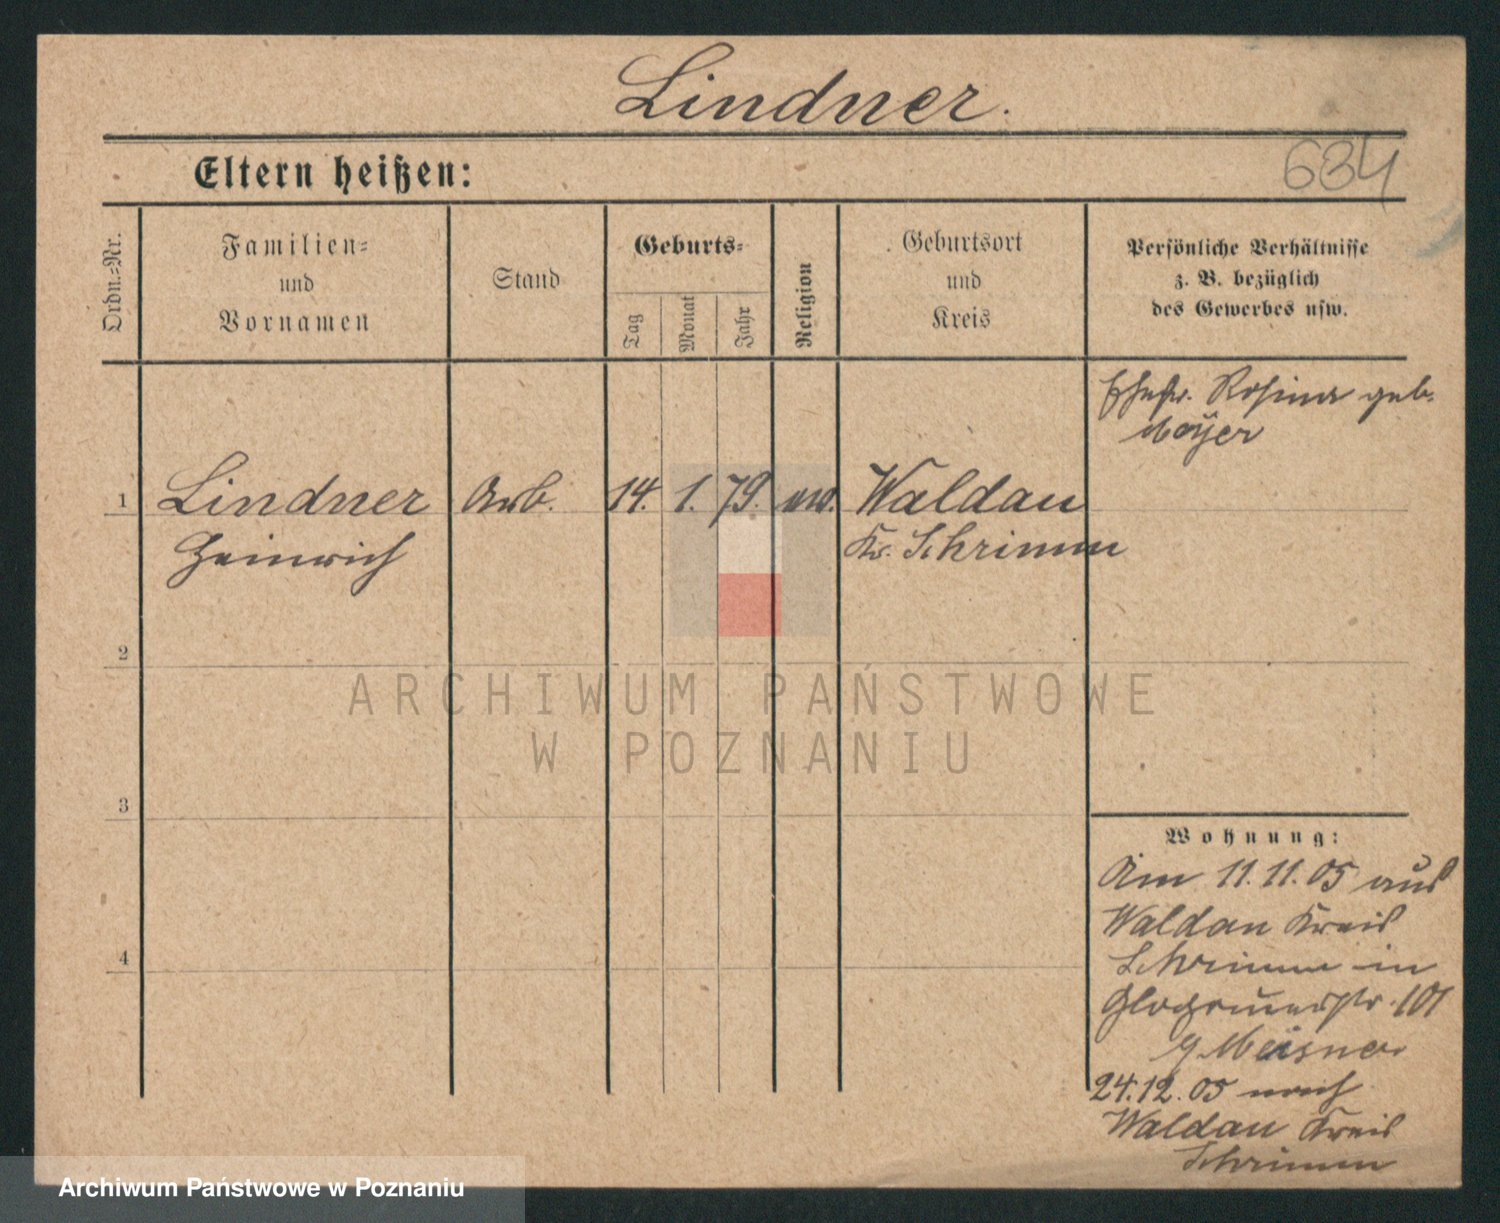 Lindner.
Eltern heißen:
634
Ordn.-Nr.
Familien-
und
Vornamen
Stand
Geburts-
Tag
Monat
Jahr
Religion
Geburtsort
und
Kreis
Persönliche Verhältnisse
z. B. bezüglich
des Gewerbes usw.
Ehefr. Rosina geb.
Moÿer
1
Lindner
Arb.
14.
1.
79.
ev.
Waldau
Heinrich
Kr. Schrimm
2
3
4
Wohnung:
Am 11.11.05 aus
Waldau Kreis
Schrimm in
Glogauerstr. 101
24.12.05 nach
Waldau Kreis
Schrimm
ARCHIWUM PAŃSTWOWE
W POZNANIU
Archiwum Państwowe w Poznaniu